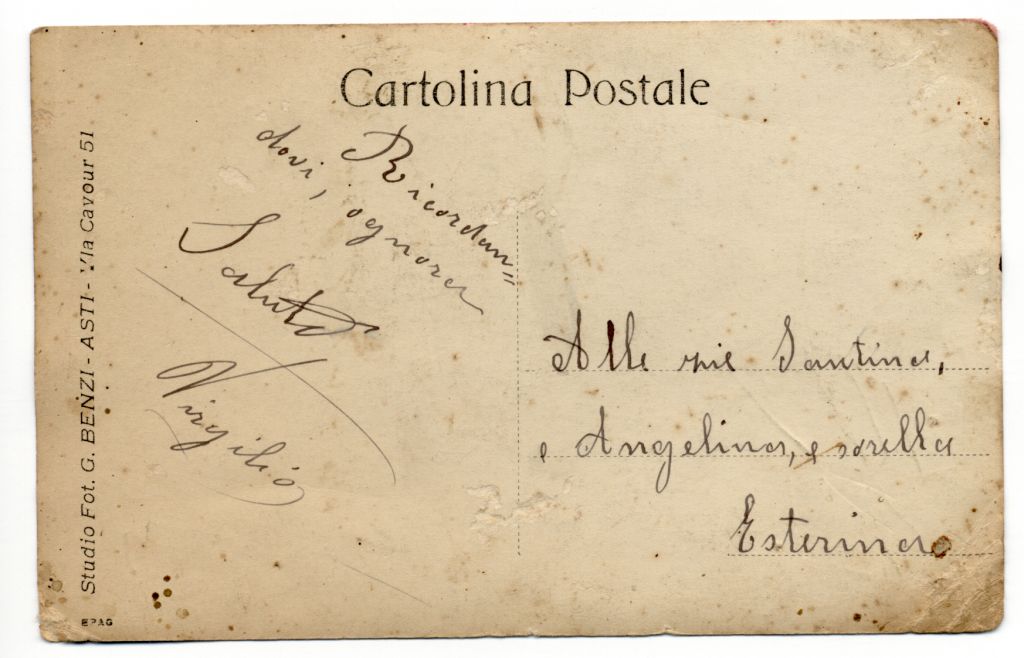 Cartolina Postale
Ricordan=
dovi, ognora
Saluto
Virgilio
Alle mie Santina,
e Angelina, e sorella
Esterina
Studio Fot. G. BENZI - ASTI - Via Cavour 51